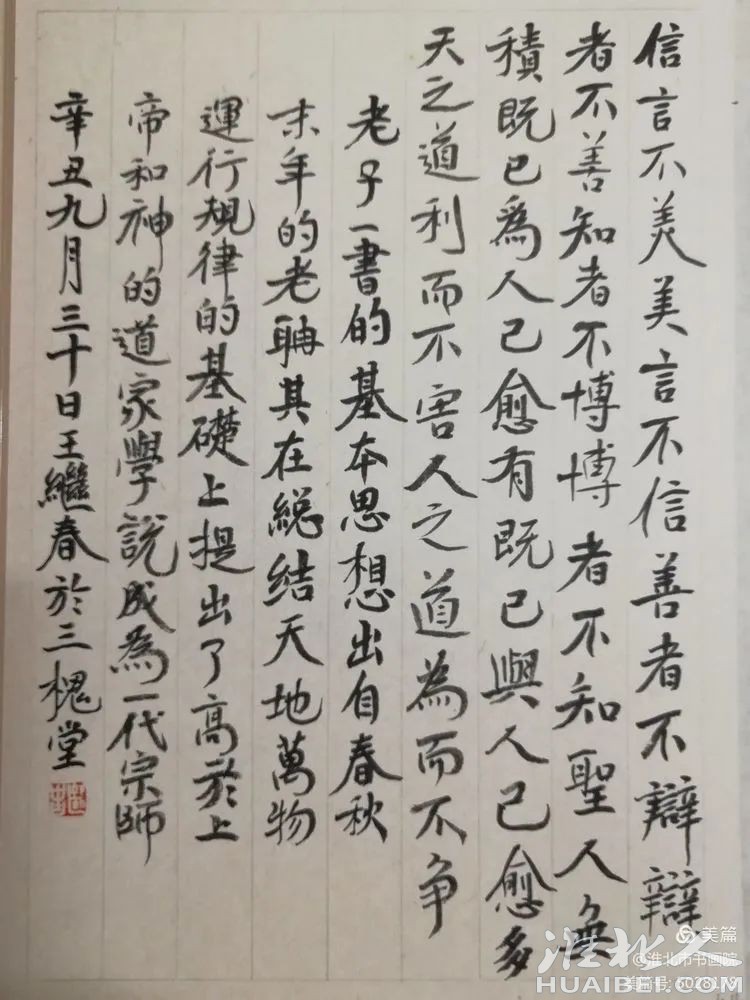 信言不美美言不信善者不辯辯
者不善知者不博博者不知聖人無
積既已為人己愈有既已與人己愈多
天之道利而不害人之道為而不争
老子一書的基本思想出自春秋
末年的老聃其在総結天地萬物
運行規律的基礎上提出了高於上
帝和神的道家學說成為一代宗師
辛丑九月三十日王繼春於三槐堂
美篇
@淮北市书画院
淮北人
HUAIBEI.COM